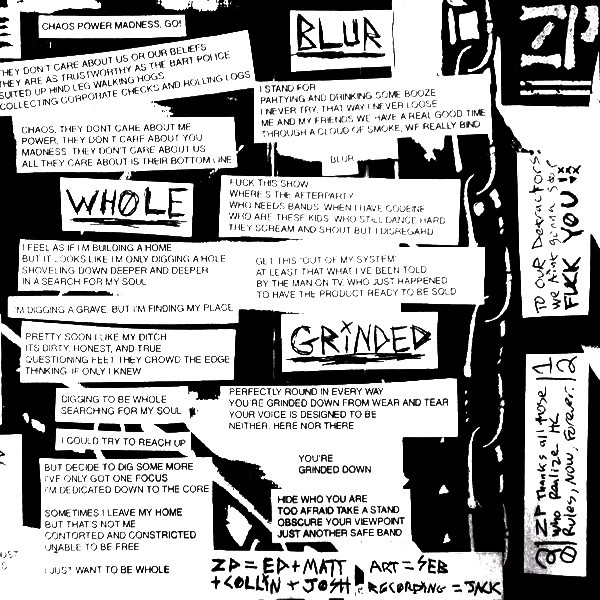 CHAOS POWER MADNESS, GO!
THEY DON'T CARE ABOUT US OR OUR BELIEFS
THEY ARE AS TRUSTWORTHY AS THE BART POLICE
SUITED UP HIND LEG WALKING HOGS
COLLECTING CORPORATE CHECKS AND ROLLING LOGS
CHAOS, THEY DONT CARE ABOUT ME
POWER, THEY DON'T CARE ABOUT YOU
MADNESS, THEY DON'T CARE ABOUT US
ALL THEY CARE ABOUT IS THEIR BOTTOM LINE
WHOLE
I FEEL AS IF I'M BUILDING A HOME
BUT IT LOOKS LIKE I'M ONLY DIGGING A HOLE
SHOVELING DOWN DEEPER AND DEEPER
IN A SEARCH FOR MY SOUL
I'M DIGGING A GRAVE, BUT I'M FINDING MY PLACE
PRETTY SOON I LIKE MY DITCH
ITS DIRTY, HONEST, AND TRUE
QUESTIONING FEET THEY CROWD THE EDGE
THINKING, IF ONLY I KNEW
DIGGING TO BE WHOLE
SEARCHING FOR MY SOUL
I COULD TRY TO REACH UP
BUT DECIDE TO DIG SOME MORE
I'VE ONLY GOT ONE FOCUS
I'M DEDICATED DOWN TO THE CORE
SOMETIMES I LEAVE MY HOME
BUT THAT'S NOT ME
CONTORTED AND CONSTRICTED
UNABLE TO BE FREE
I JUST WANT TO BE WHOLE
BLUR
I STAND FOR
PARTYING AND DRINKING SOME BOOZE
I NEVER TRY, THAT WAY I NEVER LOOSE
ME AND MY FRIENDS WE HAVE A REAL GOOD TIME
THROUGH A CLOUD OF SMOKE, WE REALLY BIND
BLUR
FUCK THIS SHOW
WHERE'S THE AFTERPARTY
WHO NEEDS BANDS, WHEN I HAVE CODEINE
WHO ARE THESE KIDS, WHO STILL DANCE HARD
THEY SCREAM AND SHOUT BUT I DISREGARD
GET THIS "OUT OF MY SYSTEM"
AT LEAST THAT WHAT I'VE BEEN TOLD
BY THE MAN ON TV, WHO JUST HAPPENED
TO HAVE THE PRODUCT READY TO BE SOLD
GRiNDED
PERFECTLY ROUND IN EVERY WAY
YOU'RE GRINDED DOWN FROM WEAR AND TEAR
YOUR VOICE IS DESIGNED TO BE
NEITHER, HERE NOR THERE
YOU'RE
GRINDED DOWN
HIDE WHO YOU ARE
TOO AFRAID TAKE A STAND
OBSCURE YOUR VIEWPOINT
JUST ANOTHER SAFE BAND
ZD = ED + MATT
+ COLLIN + JOSH
ART = SEB
RECORDING = JACK
TO OUR Detractors:
We Aint gunna Stop
FUCK YOU
ZD Thanks all those
who realize HC
Rules, Now, Forever.
2012